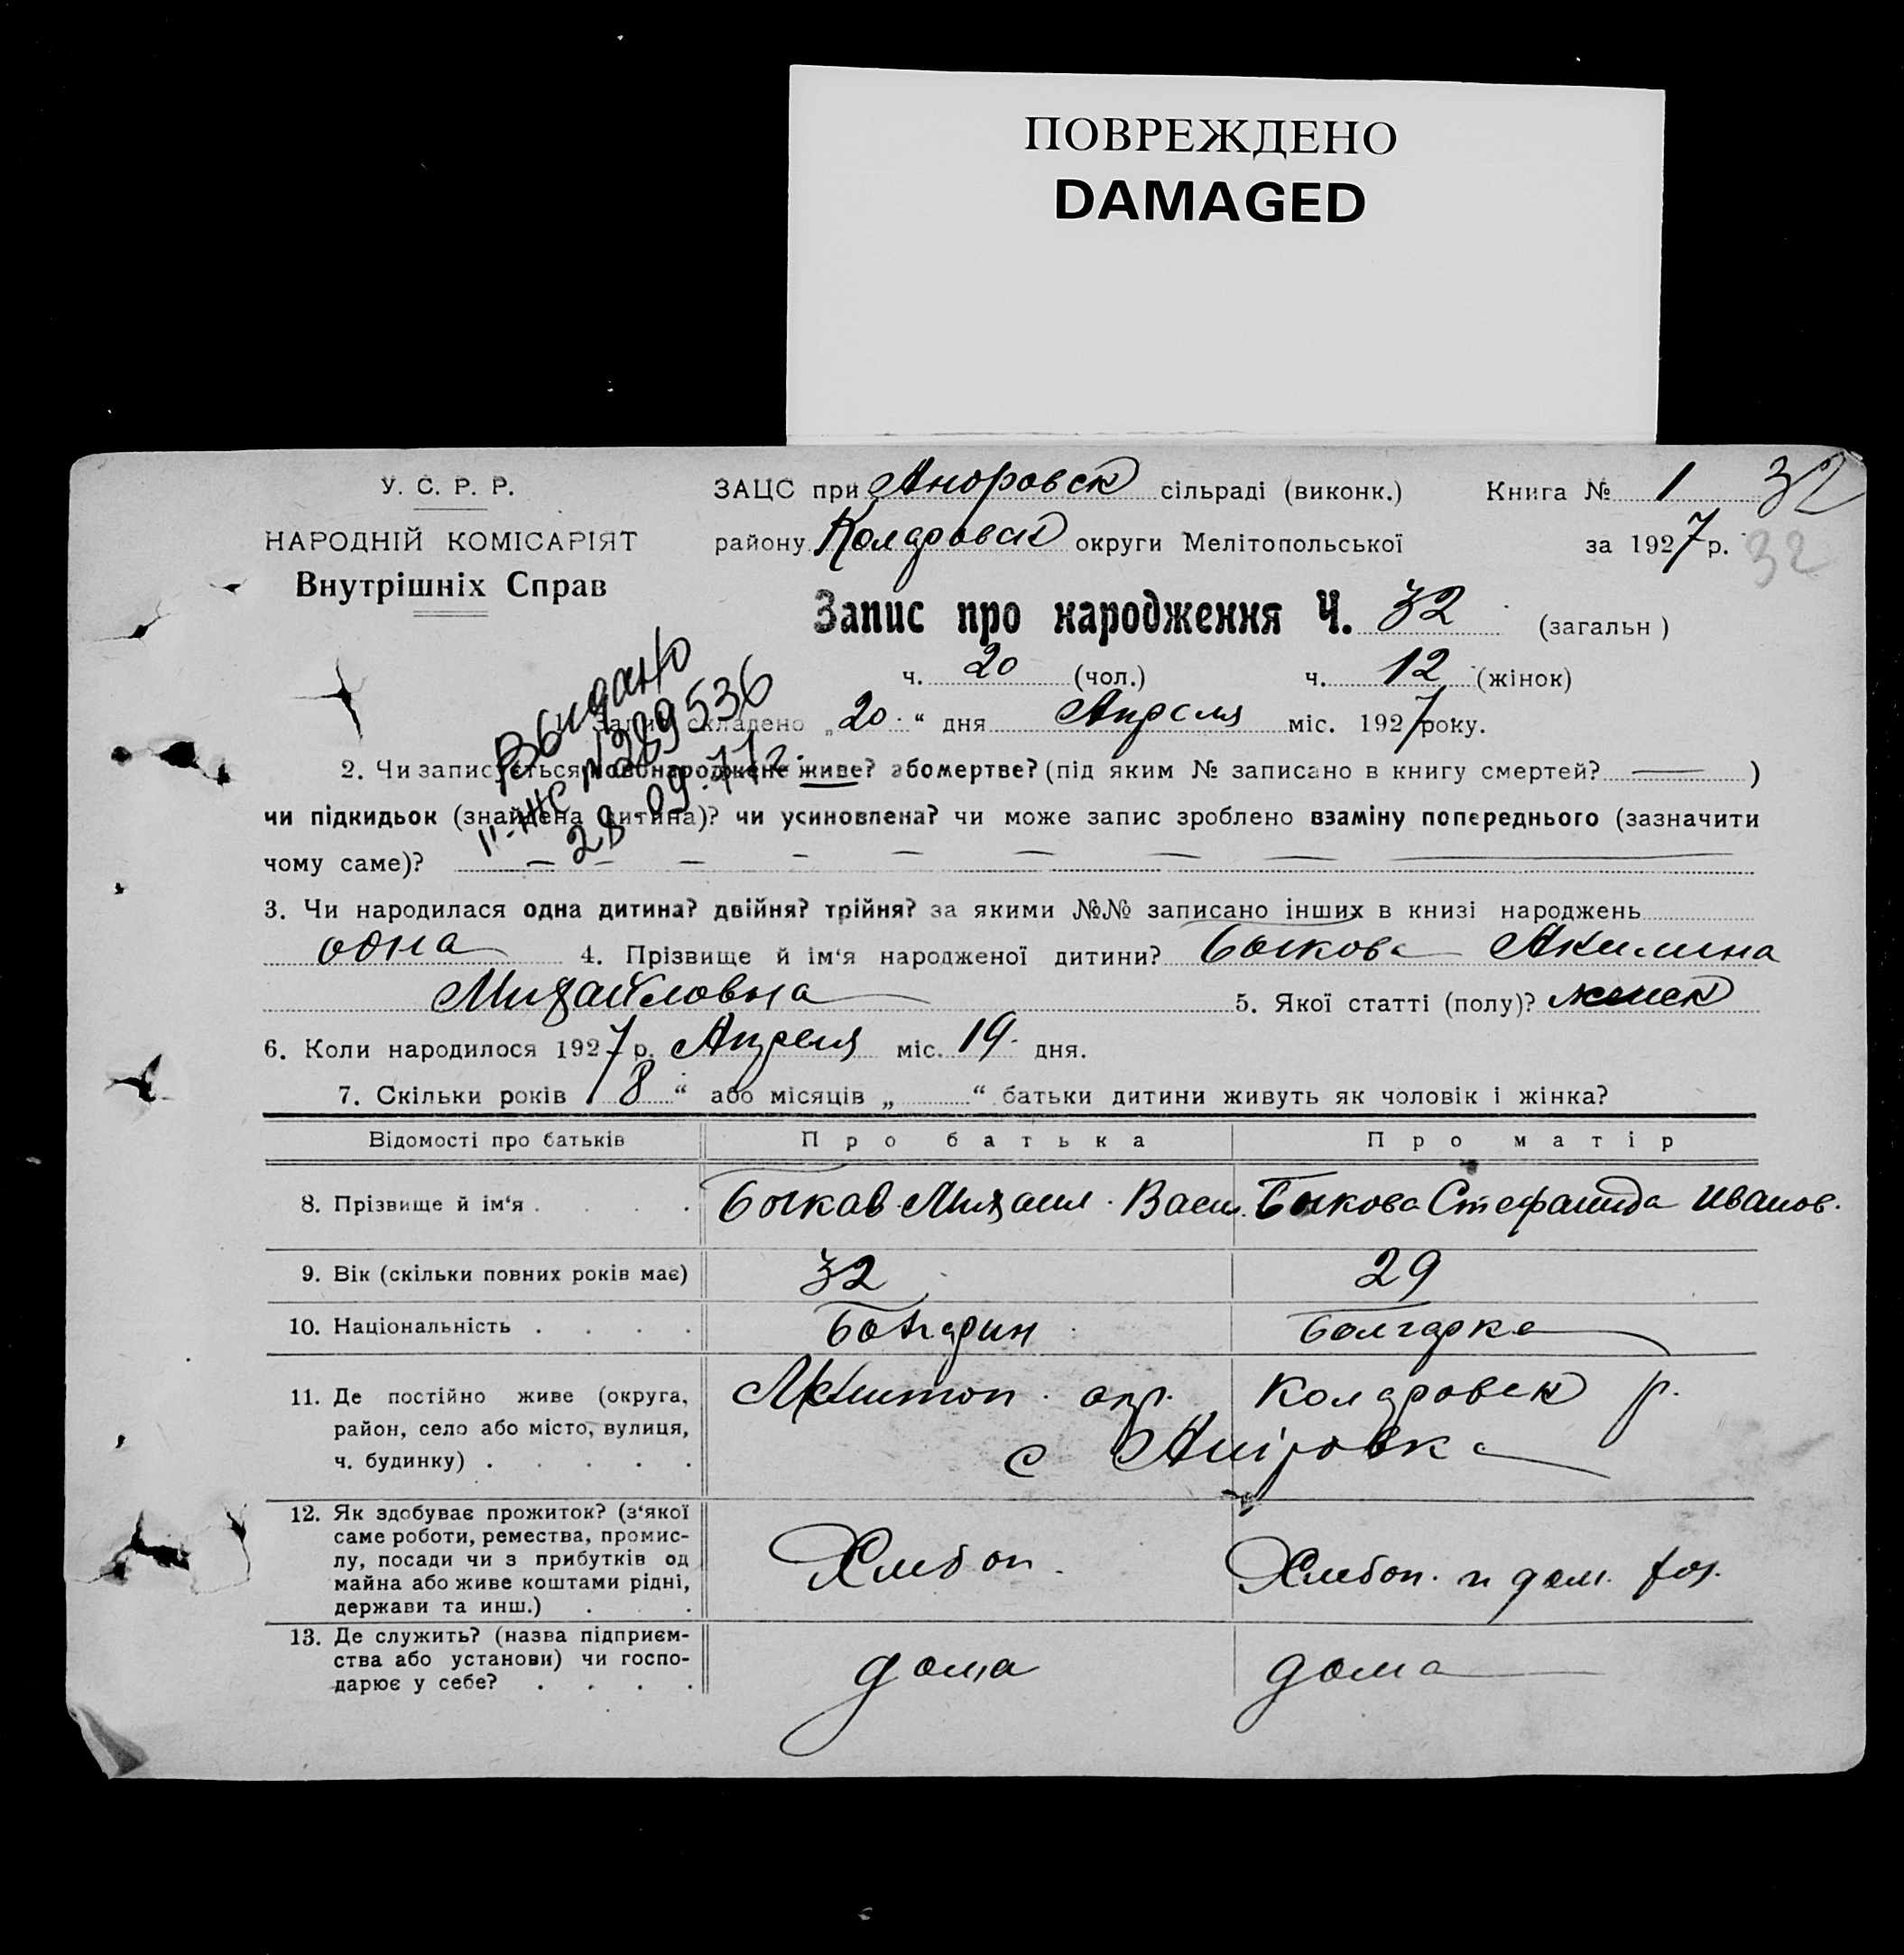 ПОВРЕЖДЕНО
DAMAGED
У. С. Р. Р.
НАРОДНІЙ КОМІСАРІЯТ
Внутрішніх Справ
ЗАЦС при сільраді (виконк.) Книга № 1 32
району Коларовск округи Мелітопольської за 1927 р. 32
Запис про народження Ч. 32 (загальн)
ч. 20 (чол.) ч. 12 (жінок)
Выдано
№ 289536
28.09.77г.
Запис складено „20“ дня Апреля міс. 1927 року.
2. Чи записується новонароджене живе? або мертве? (під яким № записано в книгу смертей? — )
чи підкидьок (знайдена дитина)? чи усиновлена? чи може запис зроблено взаміну попереднього (зазначити
чому саме)? — — — — — — — —
3. Чи народилася одна дитина? двійня? трійня? за якими №№ записано інших в книзі народжень
одна 4. Прізвище й ім‘я народженої дитини? Быкова Акилина
Михайловна 5. Якої статті (полу)? женск
6. Коли народилося 1927 р. Апреля міс. 19 дня.
7. Скільки років 8 “ або місяців „ “ батьки дитини живуть як чоловік і жінка?
Відомості про батьків Про батька Про матір
8. Прізвище й ім‘я . . . . Быков Михаил Васил. Быкова Стефанида Иванов.
9. Вік (скільки повних років має) 32 29
10. Національність . . . . Болгарин Болгарка
11. Де постійно живе (округа,
район, село або місто, вулиця,
ч. будинку) . . . . .
Мелитоп. окр. Коларовск р.
с
12. Як здобуває прожиток? (з‘якої
саме роботи, ремества, промис-
лу, посади чи з прибутків од
майна або живе коштами рідні,
держави та инш.) . . .
Хлебоп. Хлебоп. и дом. хоз.
13. Де служить? (назва підприєм-
ства або установи) чи госпо-
дарює у себе? . . . .
дома дома